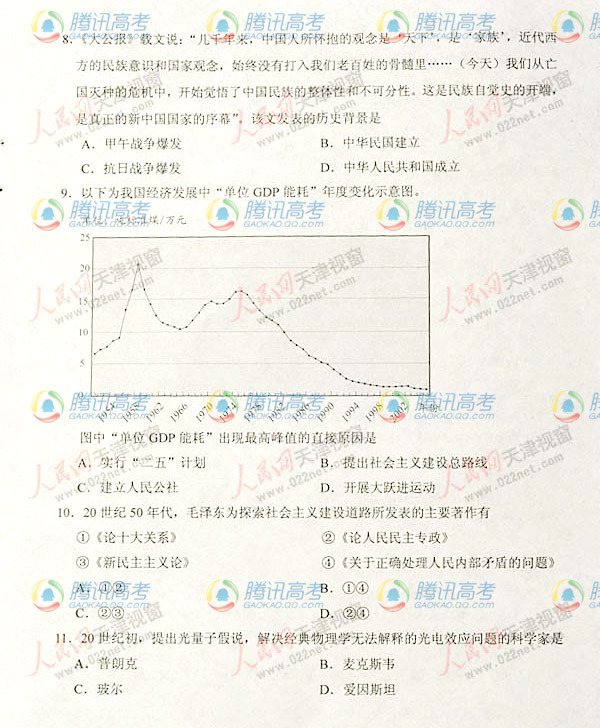 8.《大公报》载文说：“几千年来，中国人所怀抱的观念是‘天下’，是‘家族’，近代西
方的民族意识和国家观念，始终没有打入我们老百姓的骨髓里……（今天）我们从亡
国灭种的危机中，开始觉悟了中国民族的整体性和不可分性。这是民族自觉史的开端，
是真正的新中国国家的序幕”。该文发表的历史背景是
A．甲午战争爆发 B．中华民国建立
C．抗日战争爆发 D．中华人民共和国成立
9．以下为我国经济发展中“单位 GDP 能耗”年度变化示意图。
煤/万元
25
20
15
10
5
0
1962 1966 1970 1974 1986 1990 1994 1998 2002 年份
图中“单位 GDP 能耗”出现最高峰值的直接原因是
A．实行“二五”计划 B．提出社会主义建设总路线
C．建立人民公社 D．开展大跃进运动
10．20 世纪 50 年代，毛泽东为探索社会主义建设道路所发表的主要著作有
①《论十大关系》 ②《论人民民主专政》
③《新民主主义论》 ④《关于正确处理人民内部矛盾的问题》
A．①② B．①④
C．②③ D．②④
11．20 世纪初，提出光量子假说，解决经典物理学无法解释的光电效应问题的科学家是
A．普朗克 B．麦克斯韦
C．玻尔 D．爱因斯坦
腾讯高考
GAOKAO.QQ.COM
人民网 天津视窗
www.022net.com